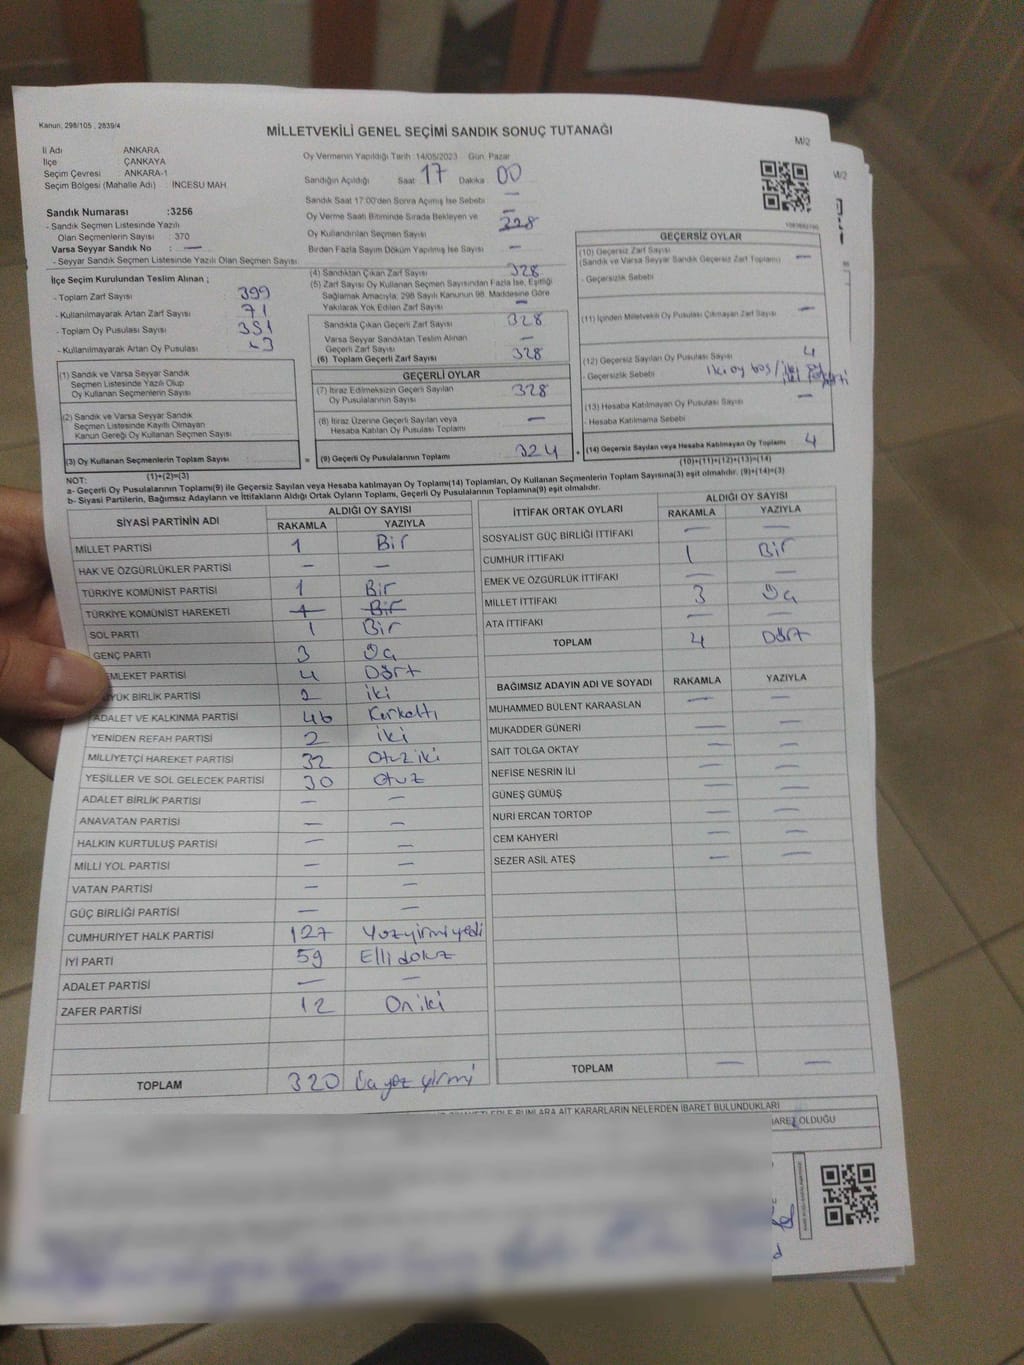 Kanun, 298/105 , 2839/4
MİLLETVEKİLİ GENEL SEÇİMİ SANDIK SONUÇ TUTANAĞI
M/2
M/2
İl Adı : ANKARA
İlçe : ÇANKAYA
Seçim Çevresi : ANKARA-1
Seçim Bölgesi (Mahalle Adı) : İNCESU MAH.
Sandık Numarası :3256
- Sandık Seçmen Listesinde Yazılı
Olan Seçmenlerin Sayısı : 370
Varsa Seyyar Sandık No : —
- Seyyar Sandık Seçmen Listesinde Yazılı Olan Seçmen Sayısı
Oy Vermenin Yapıldığı Tarih :14/05/2023 Gün: Pazar
Sandığın Açıldığı Saat 17 Dakika 00
Sandık Saat 17:00'den Sonra Açılmış İse Sebebi —
Oy Verme Saati Bitiminde Sırada Bekleyen ve —
Oy Kullandırılan Seçmen Sayısı 328
Birden Fazla Sayım Döküm Yapılmış İse Sayısı —
İlçe Seçim Kurulundan Teslim Alınan ;
- Toplam Zarf Sayısı : 399
- Kullanılmayarak Artan Zarf Sayısı : 71
- Toplam Oy Pusulası Sayısı : 351
- Kullanılmayarak Artan Oy Pusulası :
(1) Sandık ve Varsa Seyyar Sandık
Seçmen Listesinde Yazılı Olup
Oy Kullanan Seçmenlerin Sayısı
(2) Sandık ve Varsa Seyyar Sandık
Seçmen Listesinde Kayıtlı Olmayan
Kanun Gereği Oy Kullanan Seçmen Sayısı
(3) Oy Kullanan Seçmenlerin Toplam Sayısı
(1)+(2)=(3)
(4) Sandıktan Çıkan Zarf Sayısı 328
(5) Zarf Sayısı Oy Kullanan Seçmen Sayısından Fazla İse, Eşitliği
Sağlamak Amacıyla; 298 Sayılı Kanunun 98. Maddesine Göre
Yakılarak Yok Edilen Zarf Sayısı —
Sandıkta Çıkan Geçerli Zarf Sayısı 328
Varsa Seyyar Sandıktan Teslim Alınan
Geçerli Zarf Sayısı —
(6) Toplam Geçerli Zarf Sayısı 328
GEÇERLİ OYLAR
(7) İtiraz Edilmeksizin Geçerli Sayılan
Oy Pusulalarının Sayısı 328
(8) İtiraz Üzerine Geçerli Sayılan veya
Hesaba Katılan Oy Pusulası Toplamı —
= (9) Geçerli Oy Pusulalarının Toplamı 324
GEÇERSİZ OYLAR
(10) Geçersiz Zarf Sayısı
(Sandık ve Varsa Seyyar Sandık Geçersiz Zarf Toplamı) —
- Geçersizlik Sebebi
(11) İçinden Milletvekili Oy Pusulası Çıkmayan Zarf Sayısı —
(12) Geçersiz Sayılan Oy Pusulası Sayısı 4
- Geçersizlik Sebebi iki oy boş / iki
(13) Hesaba Katılmayan Oy Pusulası Sayısı —
- Hesaba Katılmama Sebebi
+ (14) Geçersiz Sayılan veya Hesaba Katılmayan Oy Toplamı 4
(10)+(11)+(12)+(13)=(14)
NOT:
a- Geçerli Oy Pusulalarının Toplamı(9) ile Geçersiz Sayılan veya Hesaba katılmayan Oy Toplamı(14) Toplamları, Oy Kullanan Seçmenlerin Toplam Sayısına(3) eşit olmalıdır. (9)+(14)=(3)
b- Siyasi Partilerin, Bağımsız Adayların ve İttifakların Aldığı Ortak Oyların Toplamı, Geçerli Oy Pusulalarının Toplamına(9) eşit olmalıdır.
SİYASİ PARTİNİN ADI
ALDIĞI OY SAYISI
RAKAMLA YAZIYLA
MİLLET PARTİSİ 1 Bir
HAK VE ÖZGÜRLÜKLER PARTİSİ — —
TÜRKİYE KOMÜNİST PARTİSİ 1 Bir
TÜRKİYE KOMÜNİST HAREKETİ 1 Bir
SOL PARTİ 1 Bir
GENÇ PARTİ 3 Üç
EMLEKET PARTİSİ 4 Dört
YÜK BİRLİK PARTİSİ 2 iki
ADALET VE KALKINMA PARTİSİ 46 Kırkaltı
YENİDEN REFAH PARTİSİ 2 iki
MİLLİYETÇİ HAREKET PARTİSİ 32 Otuz iki
YEŞİLLER VE SOL GELECEK PARTİSİ 30 Otuz
ADALET BİRLİK PARTİSİ — —
ANAVATAN PARTİSİ — —
HALKIN KURTULUŞ PARTİSİ — —
MİLLİ YOL PARTİSİ — —
VATAN PARTİSİ — —
GÜÇ BİRLİĞİ PARTİSİ — —
CUMHURİYET HALK PARTİSİ 127 Yüzyirmiyedi
İYİ PARTİ 59 Elli dokuz
ADALET PARTİSİ — —
ZAFER PARTİSİ 12 On iki
TOPLAM 320 Üçyüz yirmi
İTTİFAK ORTAK OYLARI
ALDIĞI OY SAYISI
RAKAMLA YAZIYLA
SOSYALİST GÜÇ BİRLİĞİ İTTİFAKI — —
CUMHUR İTTİFAKI 1 Bir
EMEK VE ÖZGÜRLÜK İTTİFAKI — —
MİLLET İTTİFAKI 3 Üç
ATA İTTİFAKI — —
TOPLAM 4 Dört
BAĞIMSIZ ADAYIN ADI VE SOYADI RAKAMLA YAZIYLA
MUHAMMED BÜLENT KARAASLAN — —
MUKADDER GÜNERİ — —
SAİT TOLGA OKTAY — —
NEFİSE NESRİN İLİ — —
GÜNEŞ GÜMÜŞ — —
NURİ ERCAN TORTOP — —
CEM KAHYERİ — —
SEZER ASİL ATEŞ — —
TOPLAM — —
BUNLARA AİT KARARLARIN NELERDEN İBARET BULUNDUKLARI
İBARET OLDUĞU